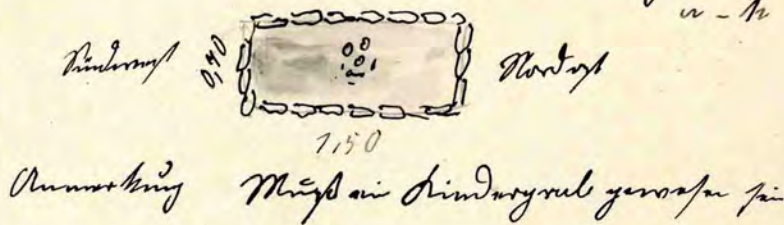 Südwest 0,70 Nordost
1,50
Anmerkung Muß ein Kindergrab gewesen sein